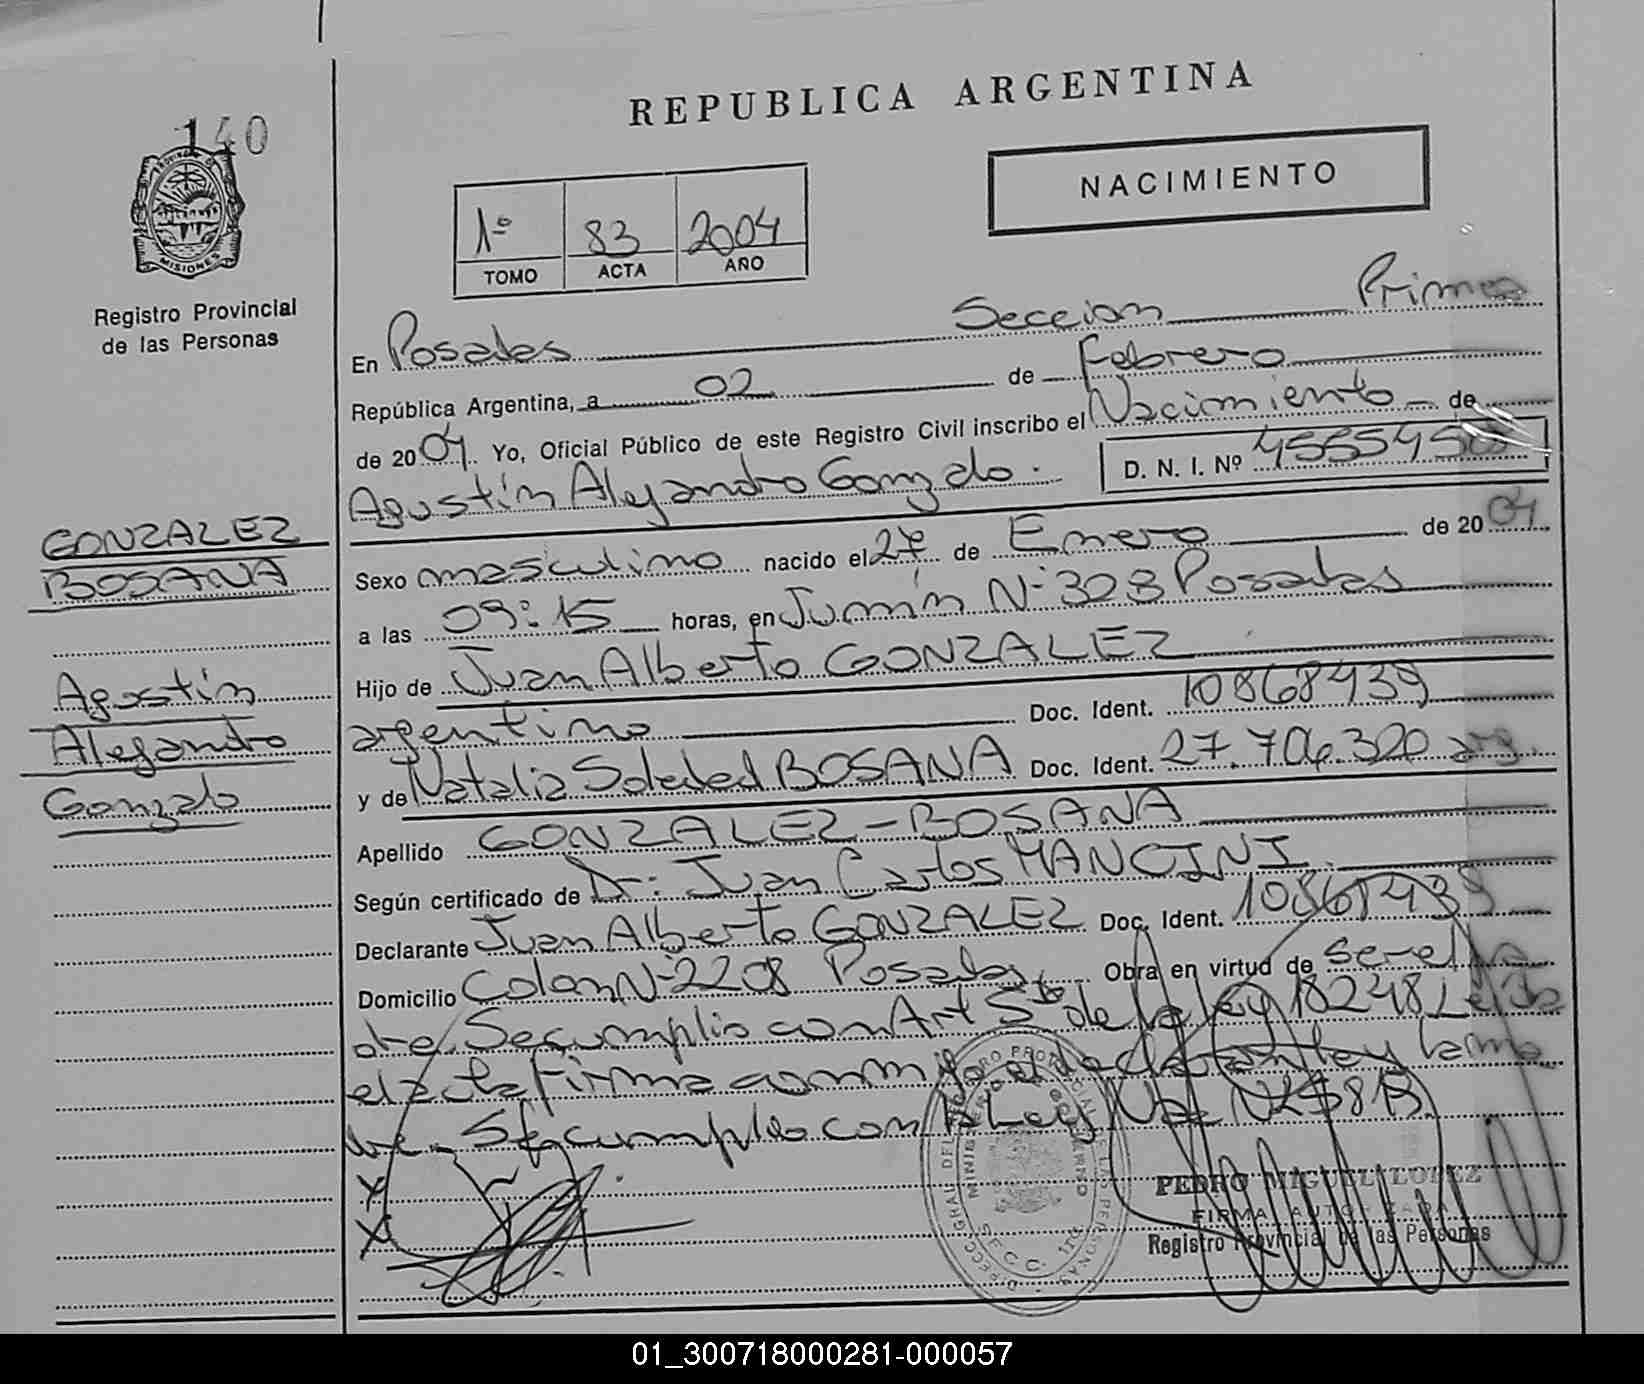 140
MISIONES
Registro Provincial
de las Personas
REPUBLICA ARGENTINA
NACIMIENTO
1º 83 2004
TOMO ACTA AÑO
En Posadas Seccion Primera
República Argentina, a 02 de Febrero
de 2004. Yo, Oficial Público de este Registro Civil inscribo el Nacimiento de
Agustín Alejandro Gonzalo. D. N. I. Nº
GONZALEZ
BOSANA
Agustín
Alejandro
Gonzalo
Sexo masculino nacido el 27 de Enero de 2004
a las 09:15 horas, en Junín Nº 323 Posadas
Hijo de Juan Alberto GONZALEZ
argentino Doc. Ident. 10868439
y de Natalia Soledad BOSANA Doc. Ident. 27.706.320 arg.
Apellido GONZALEZ-BOSANA
Según certificado de Dr. Juan Carlos MANCINI
Declarante Juan Alberto GONZALEZ Doc. Ident. 10868439
Domicilio Colon Nº 2208 Posadas Obra en virtud de ser el Pa
dre. Se cumplio con Art 5to de la Ley 18248 Leida
el acta firma conmigo
Se cumplio con la Ley
X
X
DIRECCION GRAL DEL REGISTRO PROVINCIAL DE LAS PERSONAS
MINISTERIO DE GOBIERNO
SECC. 1ra
PEDRO MIGUEL LOPEZ
FIRMA AUTORIZADA
Registro Provincial de las Personas
01_300718000281-000057